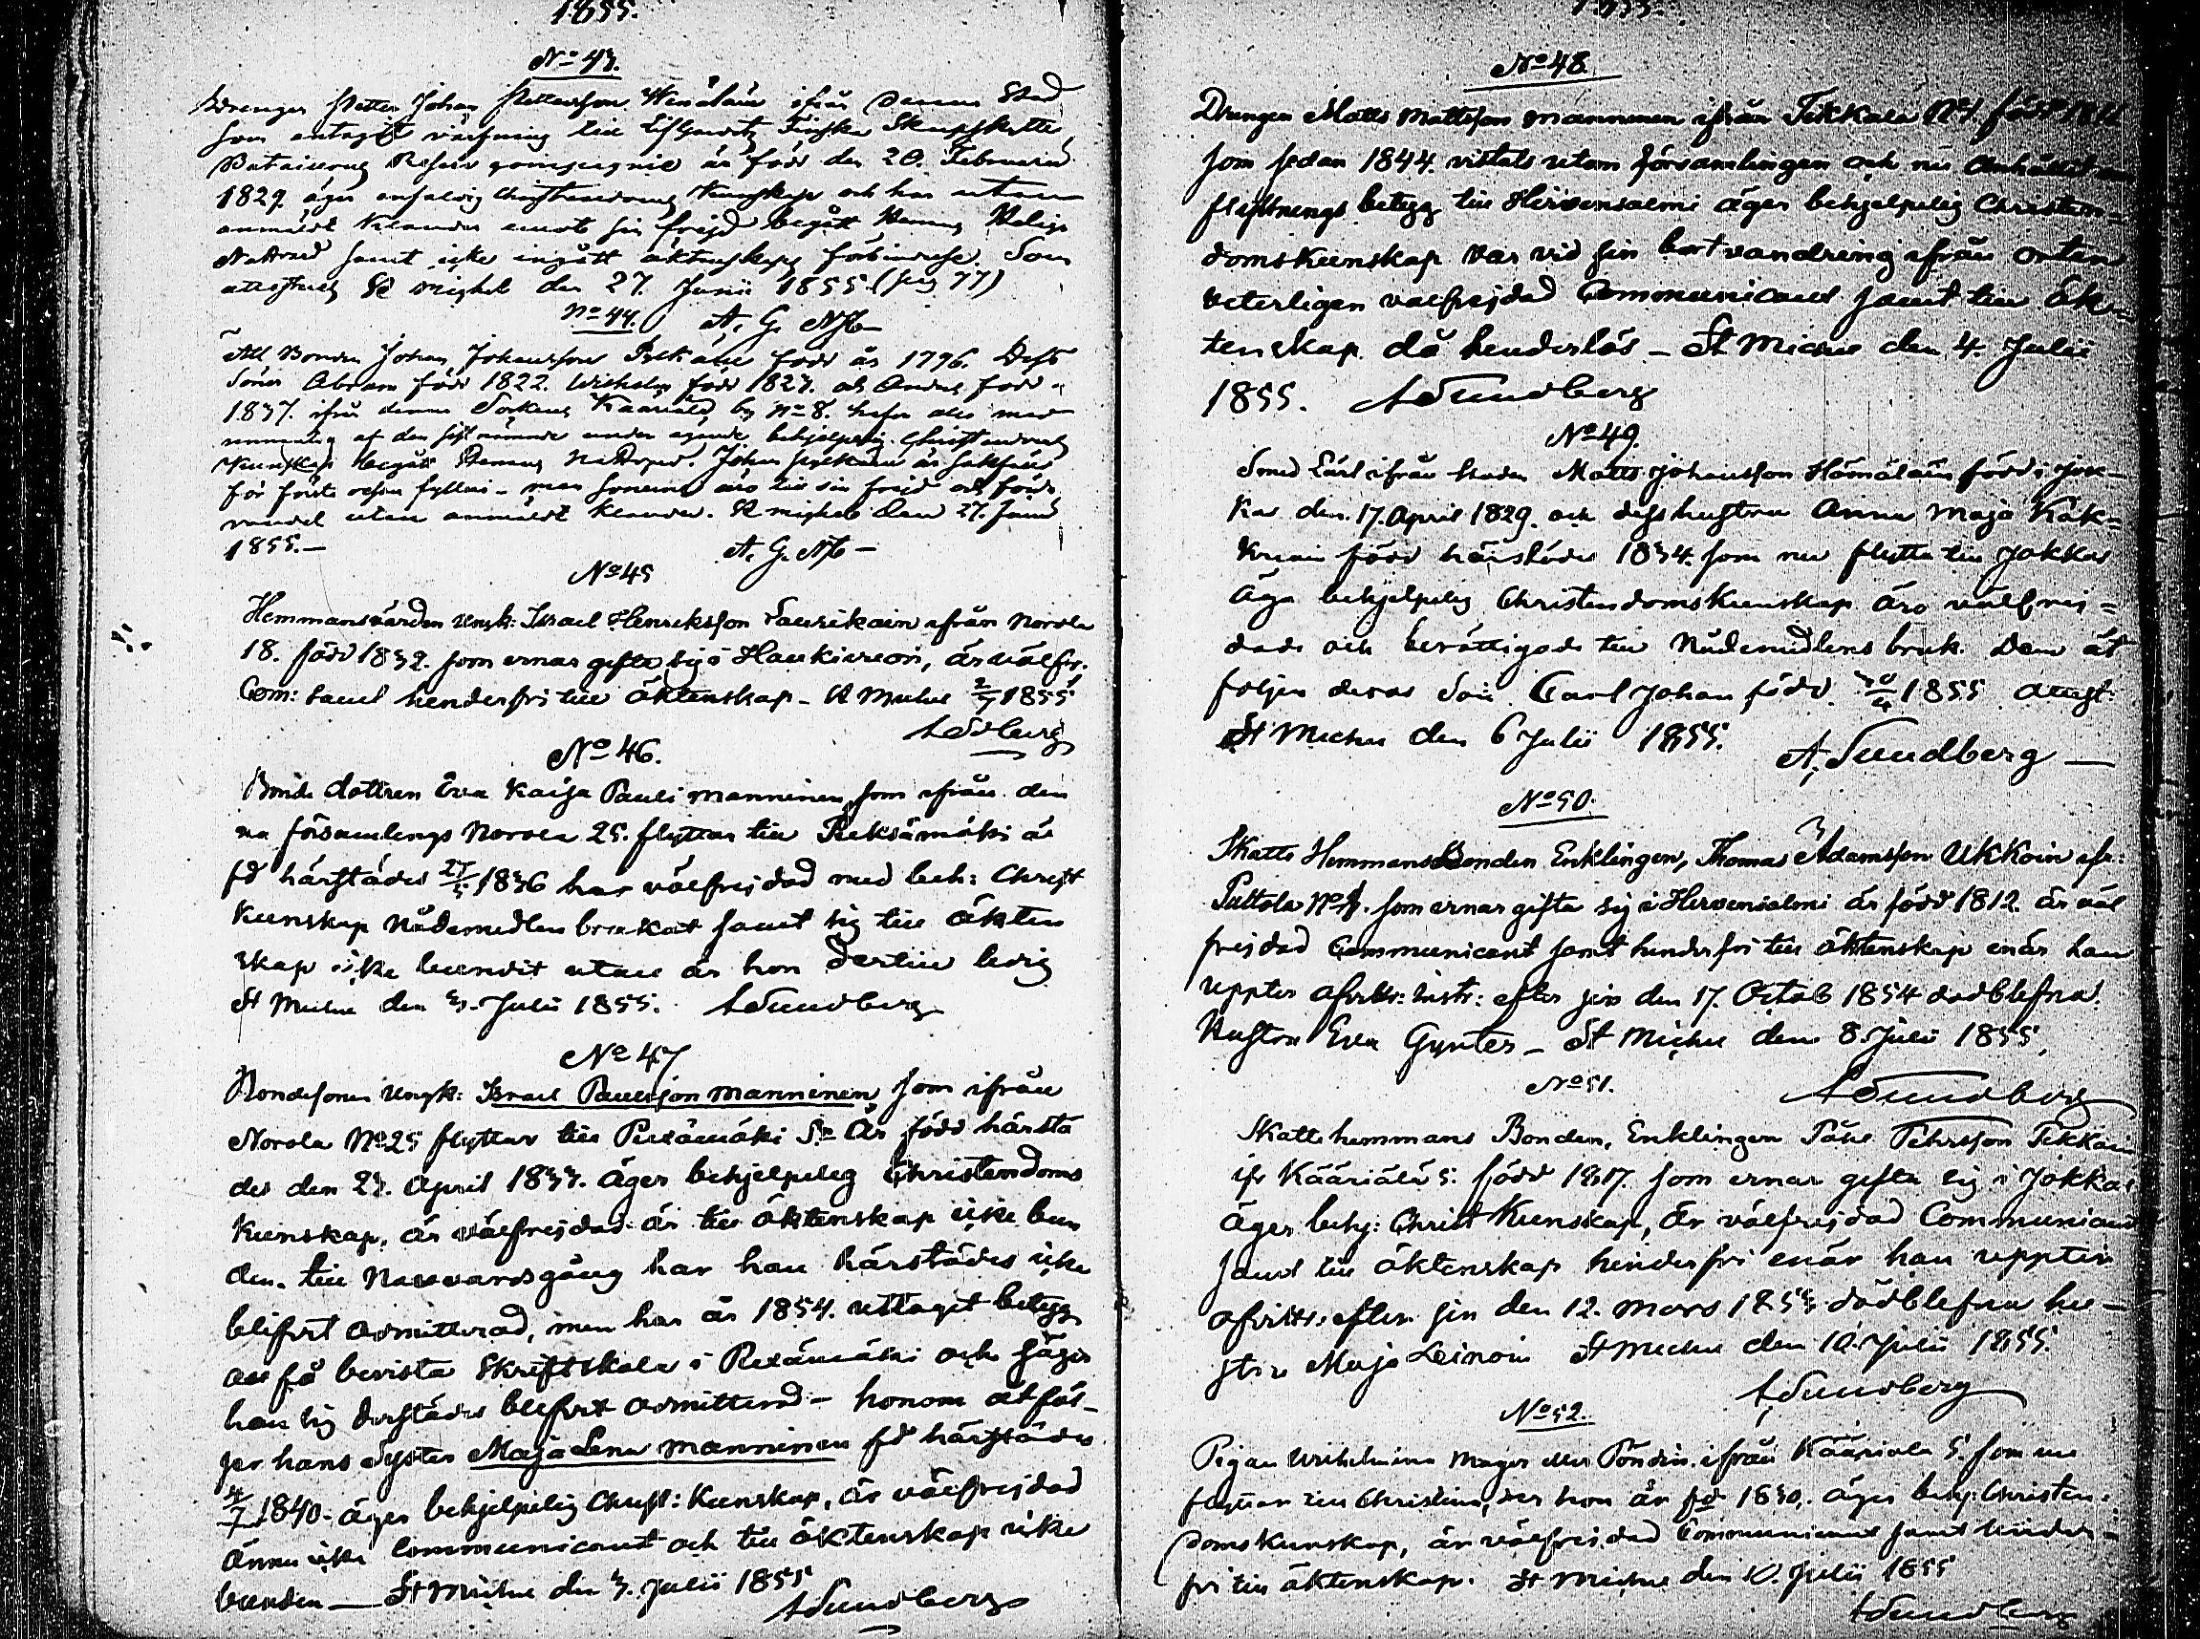 1855.
No 43.
Drengen Petter Johan Pettersson Wenäläin ifrån denna Stad
som antagit värfning till Finska Skarpskytte
Bataillons Reserv compagnie är född den 20. Februarii
1829. äger enfaldig Christendoms Kunskap och har utan
anmäldt Klander emot sin frejd begått Herrans Helige
Nattvard samt icke ingått äktenskaps förbindelse. Som
attesteras St Michel den 27. Junii 1855 (pag 77)
No 44. A. G.
Att Bonden Johan Johansson född år 1796. Dess
Söner Abram född 1822. Wilhelm född 1827. och född
1837. ifrån denna Sockens Kääriälä by No 8. hafva alla med
undantag af den sistnämnde under ägande behjelpelig Christendoms
Kunskap begått Herrans Nattvard. Johan är sakfäld
för första resan fylleri - men sönerna äro till sin frejd och
vandel utan anmäldt Klander. St Michel den 27. Junii
1855. — A. G.
No 45
Hemmansvärden Ungk: Israel Henriksson Laurikain ifrån Norola
18. född 1832. som ernar gifta sig i Haukivuori, är välfr.
Com: samt hinderfri till äktenskap - St Michel 2/7 1855
ASdberg
No 46.
Bonde dottren Eva Kaisa Pauli Manninen, som ifrån den
na församlings Norola 25. flyttar till Pieksämäki är
fd härstädes 27/5 1836 har välfrejdad med beh: Christ
Kunskap Nådemedlen brukat samt sig till äkten
skap icke bundit utan är hon dertill ledig
St Michel den 3. Julii 1855. ASundberg
No 47
Bondesonen Ungk: Israel Paulsson Manninen, som ifrån
Norola No 25 flyttar till Piexämäki Sn är född härstä
des den 23. April 1833. äger behjelpelig Christendoms
Kunskap, är välfrejdad är till äktenskap icke bun
den. till Nattvardsgång har han härstädes icke
blifvit admitterad, men har år 1854. uttagit betygg
att få bevista Skriftskola i Piexämäki och säger
han sig derstädes blifvit admitterad - honom åtföl-
jer hans Syster Maja Lena Manninen fd härstädes
4/7 1840. äger behjelpelig Christ: Kunskap, är välfrejdad
ännu icke Communicant och till äktenskap icke
bunden — St Michel den 3. Julii 1855
ASundberg
1855.
No 48
Drängen Matts Mattsson Manninen ifrån Tikkala No 1. född
som sedan 1844. vistats utom församlingen och nu anhållit om
flyttnings betygg till Hirvensalmi äger behjelpelig Christen=
domskunskap var vid sin bortvandring ifrån orten
veterligen välfrejdad Communicant samt till Äk=
tenskap då hinderlös - St Michel den 4. Julii
1855. ASundberg
No 49.
Smed Lärl ifrån Staden Matts Johansson Hämäläin född i Jok-
kas den 17. April 1829. och dess hustru Anna Maja Kok=
född härstädes 1834. som nu flytta till Jokkas
äga behjelpelig Christendomskunskap äro välfrej=
dade och berättigade till Nådemedlens bruk. Dem åt
följer deras Son Carl Johan född 30/4 1855 attest:
St Michel den 6 Julii 1855. A. Sundberg —
No 50.
Skatte Hemmans Bonden Enklingen, Thomas Adamsson Ukkoin ifr:
Pattola No som ernar gifta sig i Hirvensalmi är född 1812. är väl
frejdad Communicant samt hinderfri till äktenskap enär han
uppter afvittr: Instr: efter sin den 17. Octob 1854 dödblefna
Hustru Eva Gynter - St Michel den 8. Julii 1855,
No 51. ASundberg
Skatte hemmans Bonden, Enklingen Påhl Pehrsson Tikkain
ifr Kääriälä 5. född 1817. som ernar gifta sig i Jokkas
äger behj: Christ Kunskap, är välfrejdad Communicant
samt till äktenskap hinderfri enär han uppter
afvittr: efter sin den 12. Mars 1855 dödblefna hu-
stru Maja Leinoin St Michel den 10. Julii 1855.
ASundberg
No 52.
Pigan Wilhelmina Magn eller Pöndin ifrån Kääriälä 5 som nu
flyttar till Christina, der hon är fd 1830, äger behj: Christen=
domskunskap, är välfrejdad Communicant samt hinder=
fri till äktenskap. St Michel den 10. Julii 1855
ASundberg